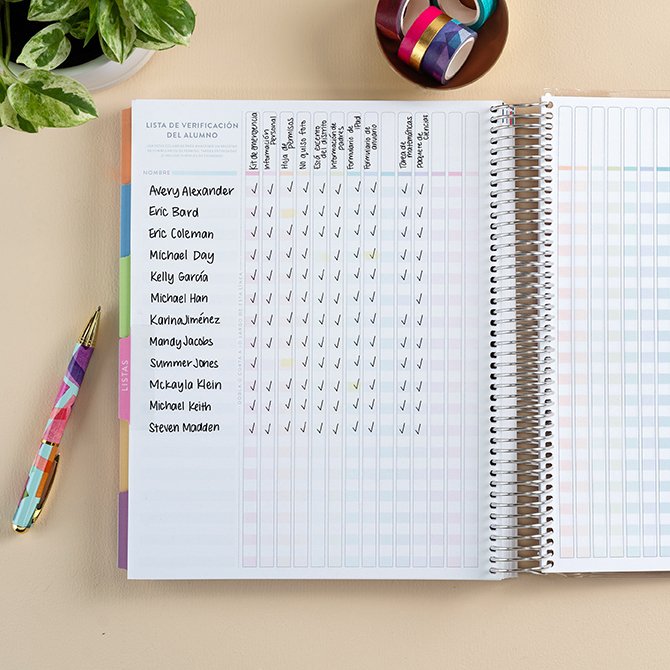 LISTA DE VERIFICACIÓN
DEL ALUMNO
NOMBRE
Kit de emergencia
Información
personal
Hoja de
permisos
No quiso foto
Está excento
del distrito
Información de
padres
Formulario de
iPad
Formulario de
anuario
Tarea de
matemáticas
paquete de
ciencias
Avery Alexander
Eric Bard
Eric Coleman
Michael Day
Kelly García
Michael Han
Karina Jiménez
Mandy Jacobs
Summer Jones
Mckayla Klein
Michael Keith
Steven Madden
LISTAS